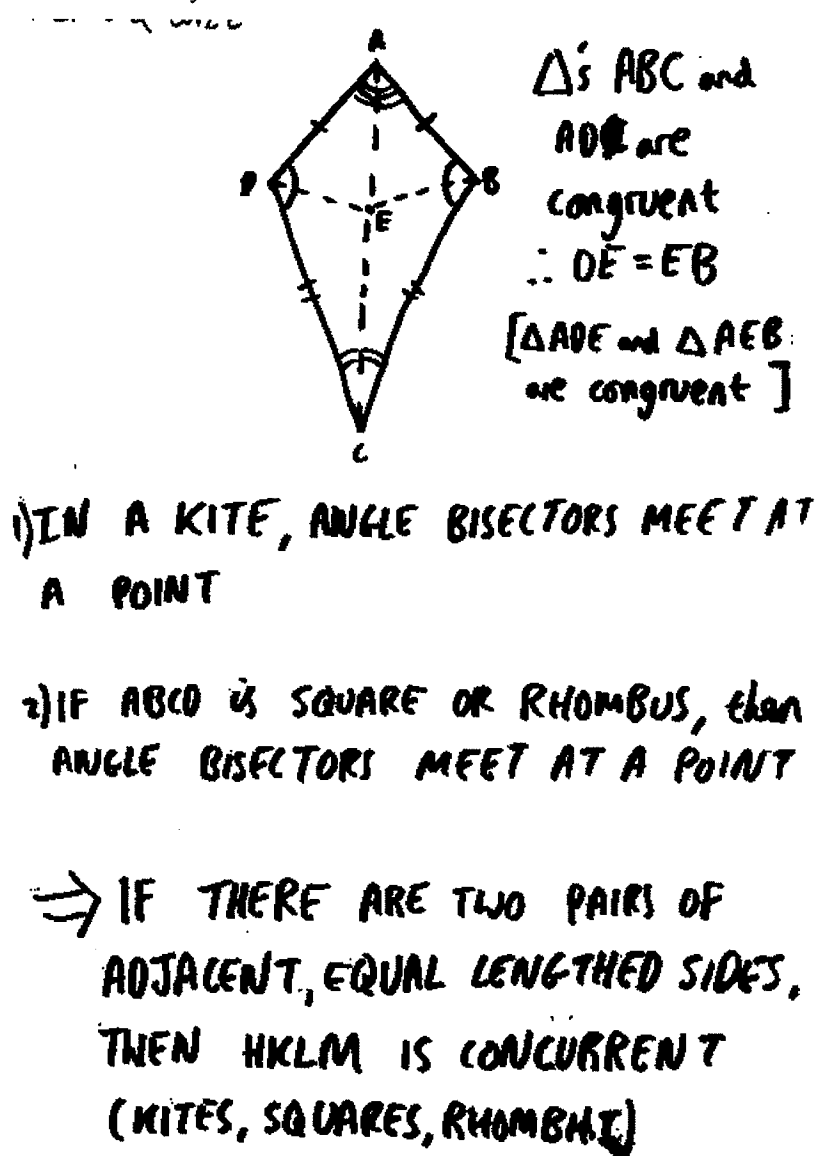 A
D
B
E
C
Δ's ABC and
ADC are
congruent
∴ DE = EB
[ΔADE and ΔAEB
are congruent]
1) IN A KITE, ANGLE BISECTORS MEET AT
A POINT
2) IF ABCD is SQUARE OR RHOMBUS, then
ANGLE BISECTORS MEET AT A POINT
⇒ IF THERE ARE TWO PAIRS OF
ADJACENT, EQUAL LENGTHED SIDES,
THEN HKLM IS CONCURRENT
(KITES, SQUARES, RHOMBHI)